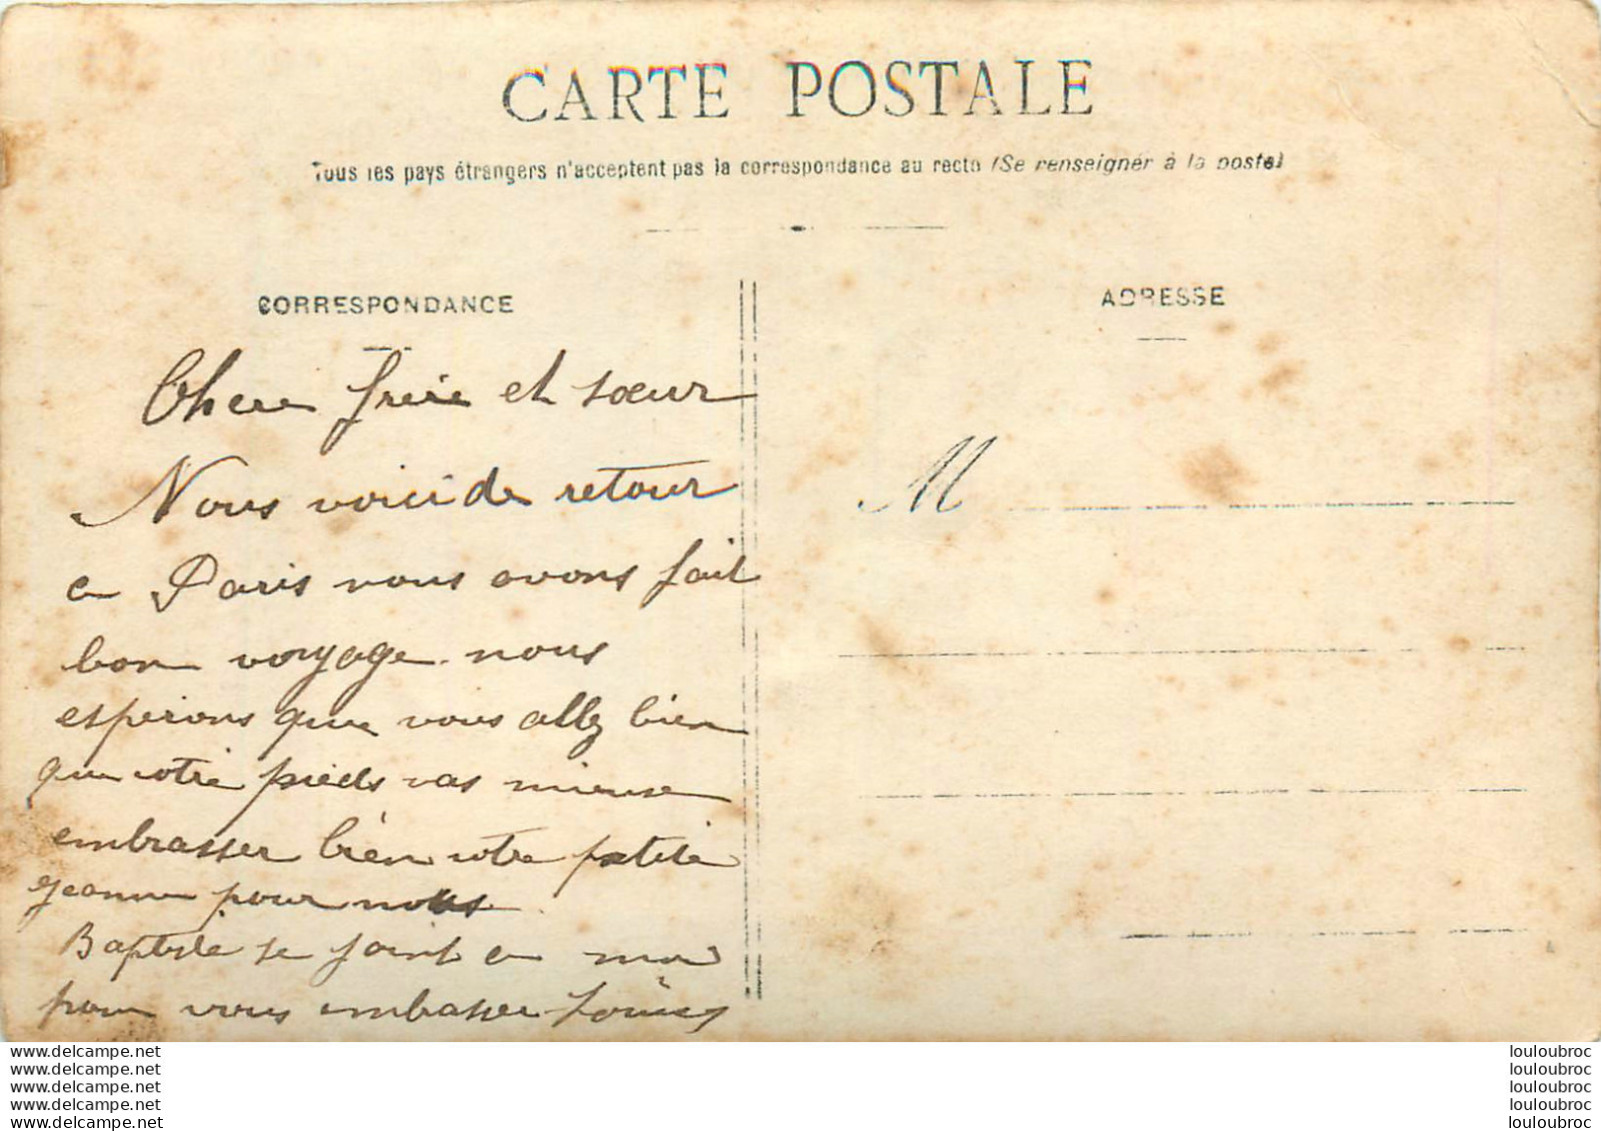 CARTE POSTALE
Tous les pays étrangers n'acceptent pas la correspondance au recto (Se renseigner à la poste)
CORRESPONDANCE
ADRESSE
Chere frere et sœur
Nous voici de retour
a Paris nous avons fait
bon voyage. nous
esperons que vous allez bien
que votre pieds vas mieux
embrasser bien votre petite
Jeanne pour nous
Baptiste se joint a moi
pour vous embrasser
M
www.delcampe.net
www.delcampe.net
www.delcampe.net
www.delcampe.net
www.delcampe.net
louloubroc
louloubroc
louloubroc
louloubroc
louloubroc